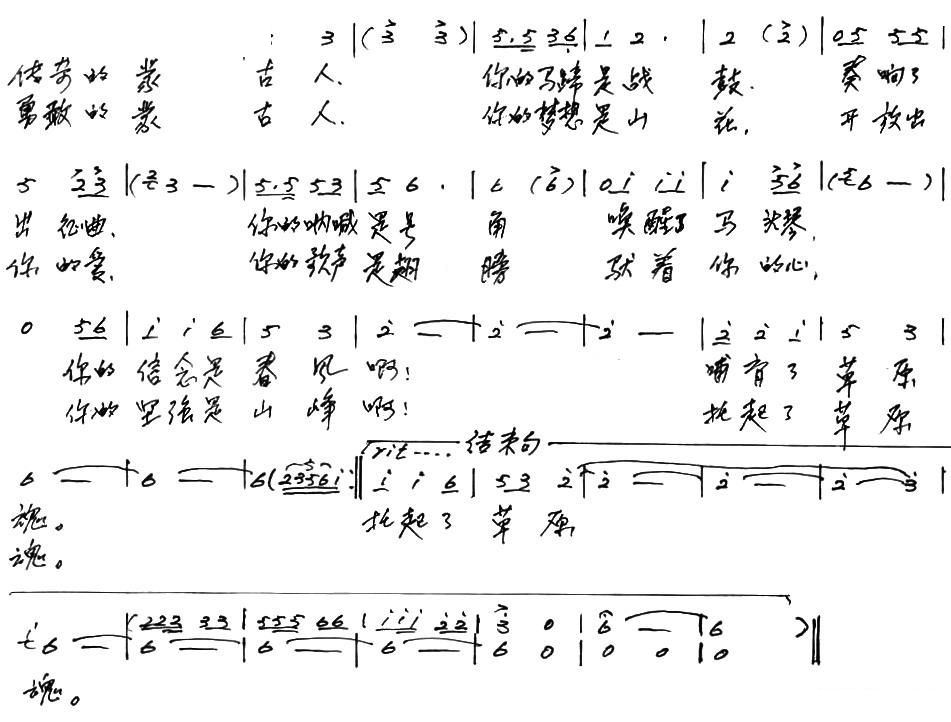 : 3 | ( 3 3 ) | 5. 5 3 6 | 1 2 . | 2 ( 2 ) | 0 5 5 5 |
传奇的蒙 古 人. 你的马蹄是战 鼓. 奏响了
勇敢的蒙 古 人. 你的梦想是山 花, 开放出
5 2 3 | ( 3 — ) | 5. 5 5 3 | 5 6 . | 6 ( 6 ) | 0 i i i | i 5 6 | ( 6 — ) |
出征曲. 你的呐喊是号 角 唤醒了 马 头琴,
你的爱. 你的歌声是翅 膀 驮着你的心,
0 5 6 | i i 6 | 5 3 | 2 — | 2 — | 2 — | 2 2 i | 5 3 |
你的 信念是 春 风 啊! 哺育了 草 原
你的 坚强是 山 峰 啊! 托起了 草 原
rit.... 结束句
6 — | 6 — | 6 ( 2 3 5 6 i :‖ i i 6 | 5 3 2 | 2 — | 2 — | 2 3 |
魂。 托起了 草 原
魂。
6 — | ( 2 2 3 3 3 | 5 5 5 6 6 | i i i 2 2 | 3 0 | 6 — | 6 ) ‖
6 — | 6 — | 6 — | 6 0 | 0 0 | 0
魂。